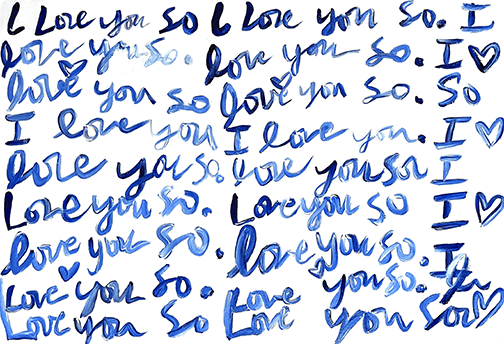 I Love you so I Love you so. I
love you so. love you so. I ♡
love you so love you so. So
I love you I love you. I ♡
love you so. love you so I
Love you so. Love you so I ♡
love you so. love you so. I
Love you so. Love you so.
Love you so Love you so ♡